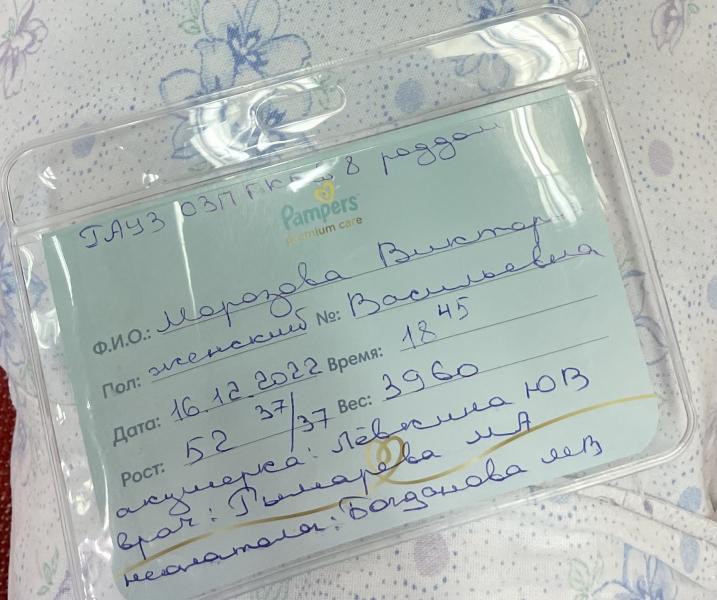 ГАУЗ ОЗП ГКБ № 8 роддом
Pampers
premium care
Ф.И.О.: Морозова Виктор
Васильевна
Пол: женский №:
Дата: 16.12.2022 Время: 18 45
Рост: 52 37/37 Вес: 3960
акушерка: Лёвкина ЮВ
врач: МА
неонатолог: Богданова МВ